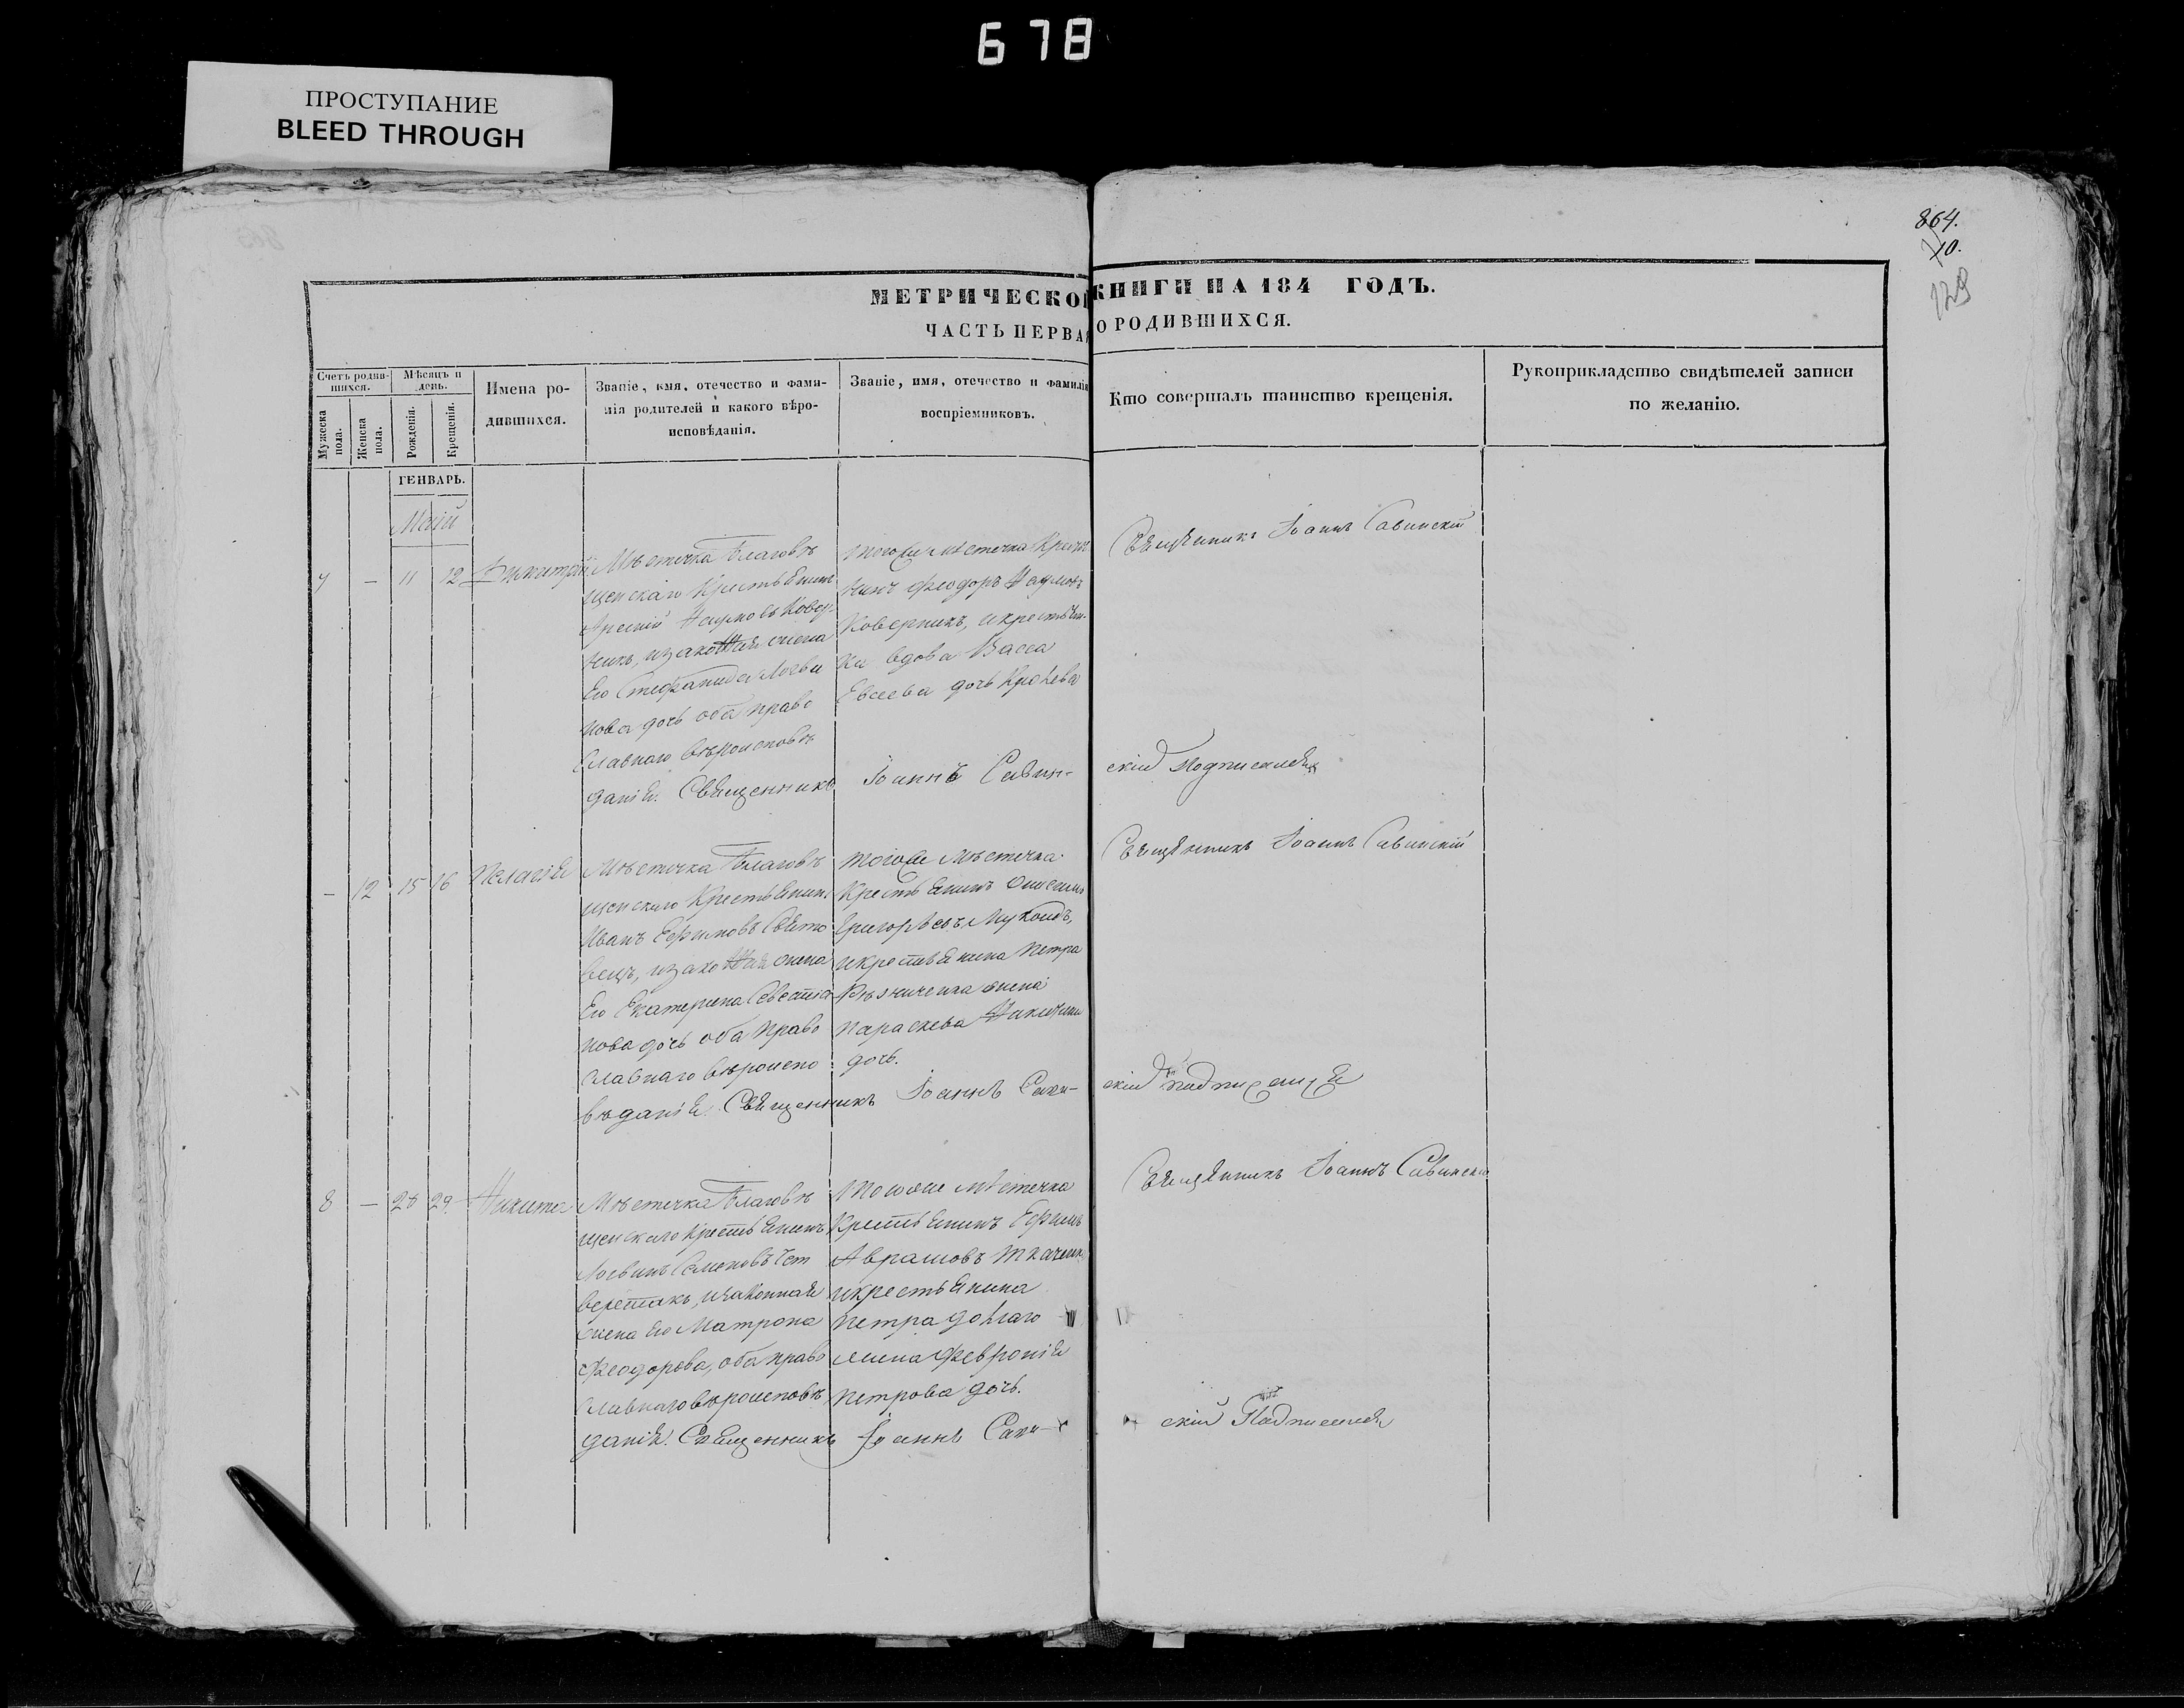 678
ПРОСТУПАНИЕ
BLEED THROUGH
864.
10.
129
МЕТРИЧЕСКОЙ КНИГИ НА 184 ГОДЪ.
ЧАСТЬ ПЕРВАЯ О РОДИВШИХСЯ.
Счетъ родив-
шихся.
Мужеска
пола.
Женска
пола.
Мѣсяцъ и
день.
Рожденія.
Крещенія.
Имена ро-
дившихся.
Званіе, имя, отечество и фами-
лія родителей и какого вѣро-
исповѣданія.
Званіе, имя, отечество и фамилія
воспріемниковъ.
Кто совершалъ таинство крещенія.
Рукоприкладство свидѣтелей записи
по желанію.
ГЕНВАРЬ.
Маій
7 — 11 12 Димитрій
Мѣстечка Благовѣ
щенскаго Крестьянинъ
Наумовъ Ковер
никъ, изаконная жена
Его Стефанида Логви
нова дочь оба право
славнаго вѣроисповѣ
данія. Священникъ Іоаннъ Савин-
скій Подписался
тогоже мѣстечка Крестья
нинъ Феодоръ Наумовъ
Коверникъ, икрестьян-
ка вдова Васса
Евсеева дочь
Священникъ Іоаннъ Савинскій
— 12 15 16 Пелагія
Мѣстечка Благовѣ
щенскаго Крестьянинъ
Иванъ Ефимовъ
вецъ, изаконная жена
Его Екатерина Севастія
нова дочь оба право
славнаго вѣроиспо
вѣданія. Священникъ Іоаннъ Сави-
скій подписался
тогоже мѣстечка
Крестьянинъ Онисимъ
Григорьевъ Мукоидъ,
икрестьянина Петра
жена
параскева Никитина
дочь.
Священникъ Іоаннъ Савинскій
8 — 28 29 Никита
Мѣстечка Благовѣ
щенскаго Крестьянинъ
Логвинъ Семеновъ Чет
вертакъ, изаконная
жена Его Матрона
Феодорова, оба право
славнаго вѣроисповѣ
данія. Священникъ Іоаннъ Сави-
скій Подписался
тогоже мѣстечка
Крестьянинъ Ефимъ
Аврамовъ Ткаченко
икрестьянина
петра долгаго
жена Февронія
петрова дочь.
Священникъ Іоаннъ Савинскій